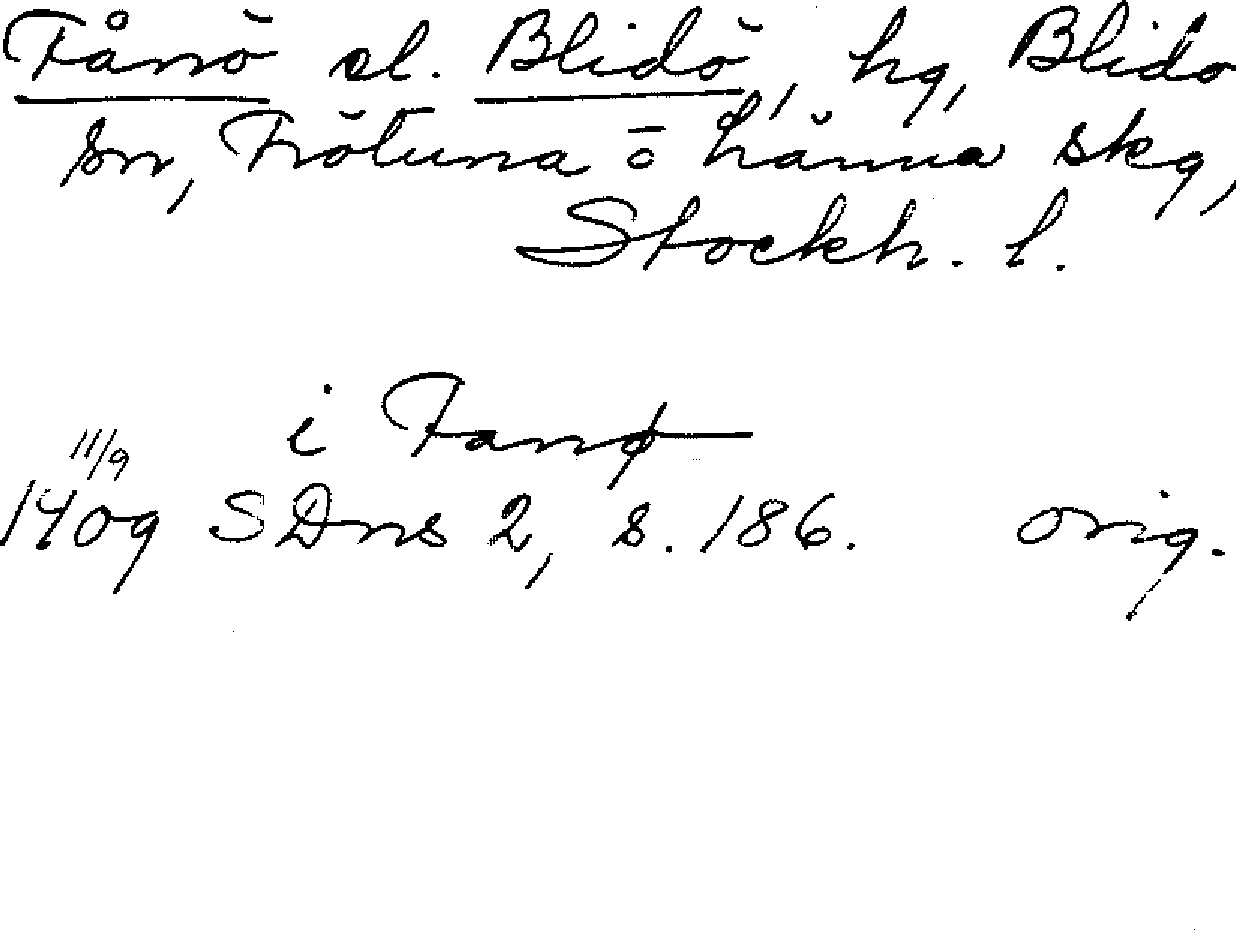 Fånö el. Blidö, hg, Blidö
sn, Frötuna o Länna skg,
Stockh. l.
i Fanø
11/9
1409 SDns 2, s. 186. orig.